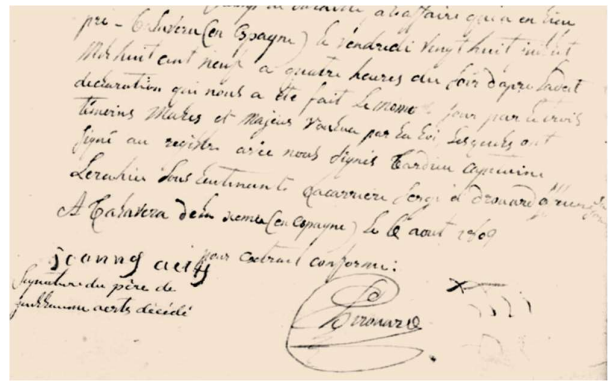 champ de bataille a l'affaire qui a eu lieu
pre - Talavera (en Espagne) le vendredi vingt huit juillet
mil huit cent neuf a quatre heures du soir d'apres la
declaration qui nous a été fait le meme jour par le trois
témoins males et majeur voulu par la loi, lesquels ont
signé au registre avec nous signés Tardieu
Sous lieutenant Lacarriere Serg. et Drouard
A Talavera de la (en Espagne) le août 1809
pour extrait conforme :
joanng aerts
Signature du père de
guillaume aerts décédé
Drouard